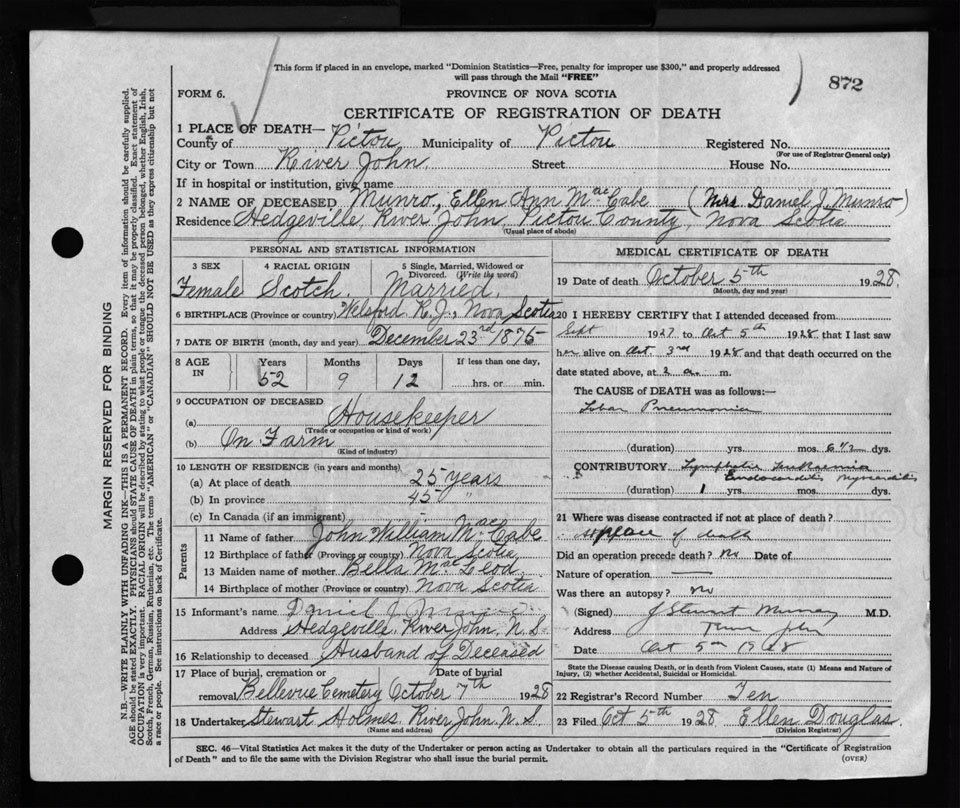 This form if placed in an envelope, marked "Dominion Statistics—Free, penalty for improper use $300," and properly addressed
will pass through the Mail "FREE"
872
FORM 6.
PROVINCE OF NOVA SCOTIA
CERTIFICATE OF REGISTRATION OF DEATH
1 PLACE OF DEATH—
County of Pictou Municipality of Pictou Registered No.
(For use of Registrar General only)
City or Town River John Street House No.
If in hospital or institution, give name
2 NAME OF DECEASED Munro, Ellen Ann MacCabe (Mrs Daniel J. Munro)
Residence Hedgeville, River John, Pictou County, Nova Scotia
(Usual place of abode)
PERSONAL AND STATISTICAL INFORMATION
3 SEX 4 RACIAL ORIGIN 5 Single, Married, Widowed or
Divorced. (Write the word)
Female Scotch. Married.
6 BIRTHPLACE (Province or country) Welsford R.J., Nova Scotia
7 DATE OF BIRTH (month, day and year) December 23rd 1875
8 AGE IN Years Months Days If less than one day,
52 9 12 hrs. or min.
9 OCCUPATION OF DECEASED
(a) Housekeeper
(Trade or occupation or kind of work)
(b) On Farm
(Kind of industry)
10 LENGTH OF RESIDENCE (in years and months)
(a) At place of death 25 years
(b) In province 45 "
(c) In Canada (if an immigrant) -
Parents
11 Name of father John William MacCabe
12 Birthplace of father (Province or country) Nova Scotia
13 Maiden name of mother Bella MacLeod
14 Birthplace of mother (Province or country) Nova Scotia
15 Informant's name Daniel J. Munro
Address Hedgeville, River John, N.S.
16 Relationship to deceased Husband of Deceased
17 Place of burial, cremation or removal Date of burial
Bellevue Cemetery October 7th 1928
18 Undertaker Stewart Holmes. River John, N.S.
(Name and address)
MEDICAL CERTIFICATE OF DEATH
19 Date of death October 5th 1928.
(Month, day and year)
20 I HEREBY CERTIFY that I attended deceased from
Sept 1927 to Oct 5th 1928 that I last saw
her alive on Oct. 3rd 1928 and that death occurred on the
date stated above, at 2 a. m.
The CAUSE OF DEATH was as follows:
Lobar Pneumonia
(duration) yrs. mos. 6 1/2 dys.
CONTRIBUTORY Lymphatic Leukaemia
Endocarditis Myocarditis
(duration) 1 yrs. mos. dys.
21 Where was disease contracted if not at place of death?
place of death
Did an operation precede death? No Date of
Nature of operation —
Was there an autopsy? No
(Signed) J Stewart Murray M.D.
Address River John
Date Oct 5th 1928
State the Disease causing Death, or in death from Violent Causes, state (1) Means and Nature of
Injury, (2) whether Accidental, Suicidal or Homicidal.
22 Registrar's Record Number Ten
23 Filed Oct 5th 1928. Ellen Douglas.
(Division Registrar)
SEC. 46—Vital Statistics Act makes it the duty of the Undertaker or person acting as Undertaker to obtain all the particulars required in the "Certificate of Registration
of Death" and to file the same with the Division Registrar who shall issue the burial permit.
(OVER)
MARGIN RESERVED FOR BINDING
N.B.—WRITE PLAINLY WITH UNFADING INK—THIS IS A PERMANENT RECORD. Every item of information should be carefully supplied.
AGE should be stated EXACTLY. PHYSICIANS should STATE CAUSE OF DEATH in plain terms, so that it may be properly classified. Exact statement of
OCCUPATION is very important. RACIAL ORIGIN will be described by stating to what people or tongue the deceased person belonged, whether English, Irish,
Scotch, French, German, Russian, Ruthenian, etc. The terms "AMERICAN" or "CANADIAN" SHOULD NOT BE USED as they express citizenship but not
a race or people. See instructions on back of Certificate.